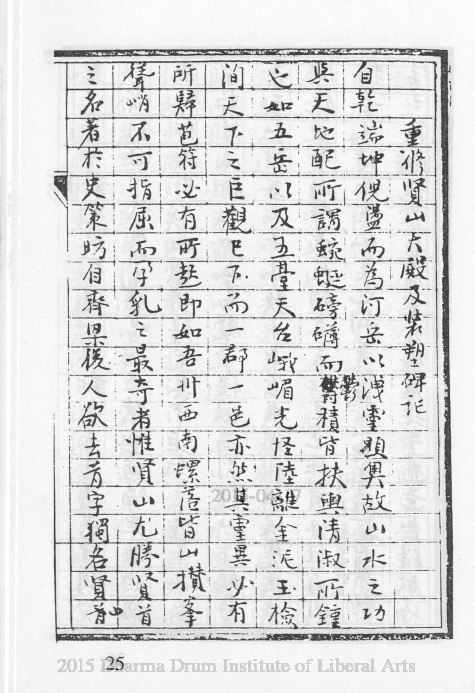 重修賢山大殿及裝塑碑記
自乾端坤倪盪而為河岳以洩靈顯奧故山水之功
與天地配所謂蜿蟺磅礴而鬱積皆扶輿清淑所鍾
也如五岳以及五臺天台峨嵋光怪陸離金泥玉檢
洵天下之巨觀已下而一郡一邑亦然其靈異必有
所歸苞符必有所起即如吾州西南螺落皆山攢峯
聳峭不可指屈而孕乳之最奇者惟賢山尤勝賢首
之名著於史策昉自齊梁後人欲去首字獨名賢山
25
2015 Dharma Drum Institute of Liberal Arts